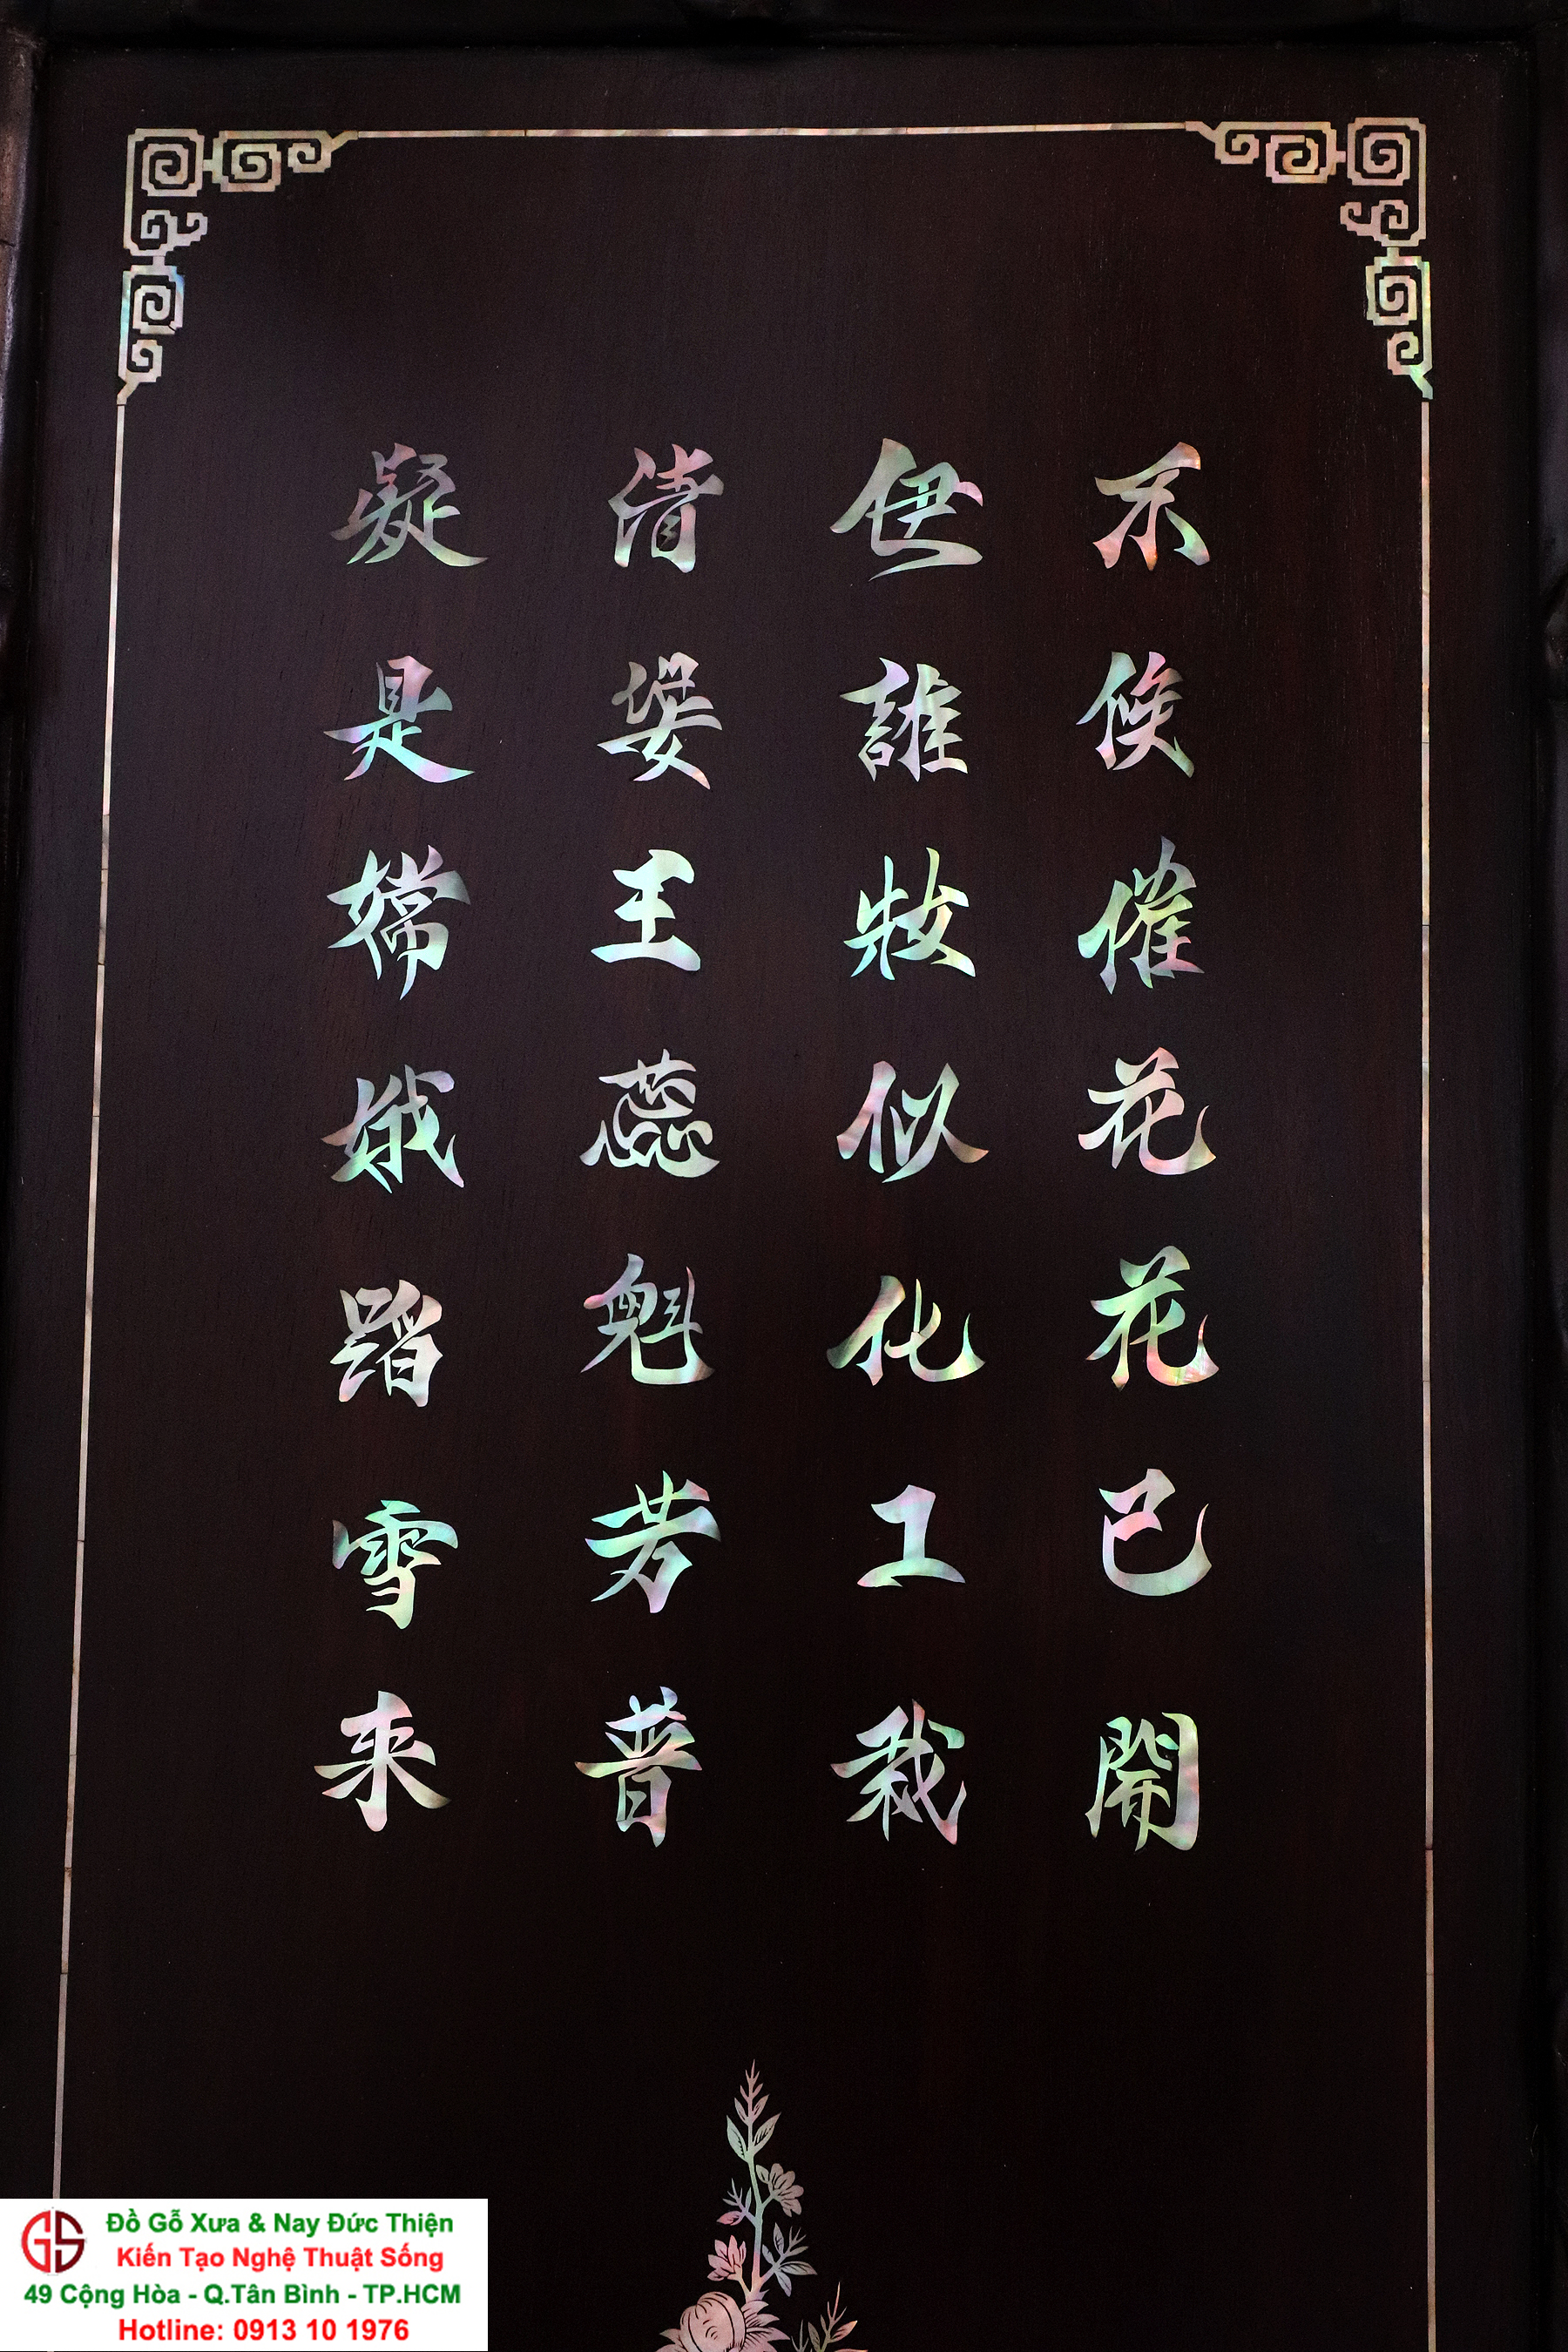 不俟催花花已開
伊誰妝似化工栽
清姿王蕊魁芳普
凝是嫦娥踏雪来
Đồ Gỗ Xưa & Nay Đức Thiện
Kiến Tạo Nghệ Thuật Sống
49 Cộng Hòa - Q.Tân Bình - TP.HCM
Hotline: 0913 10 1976